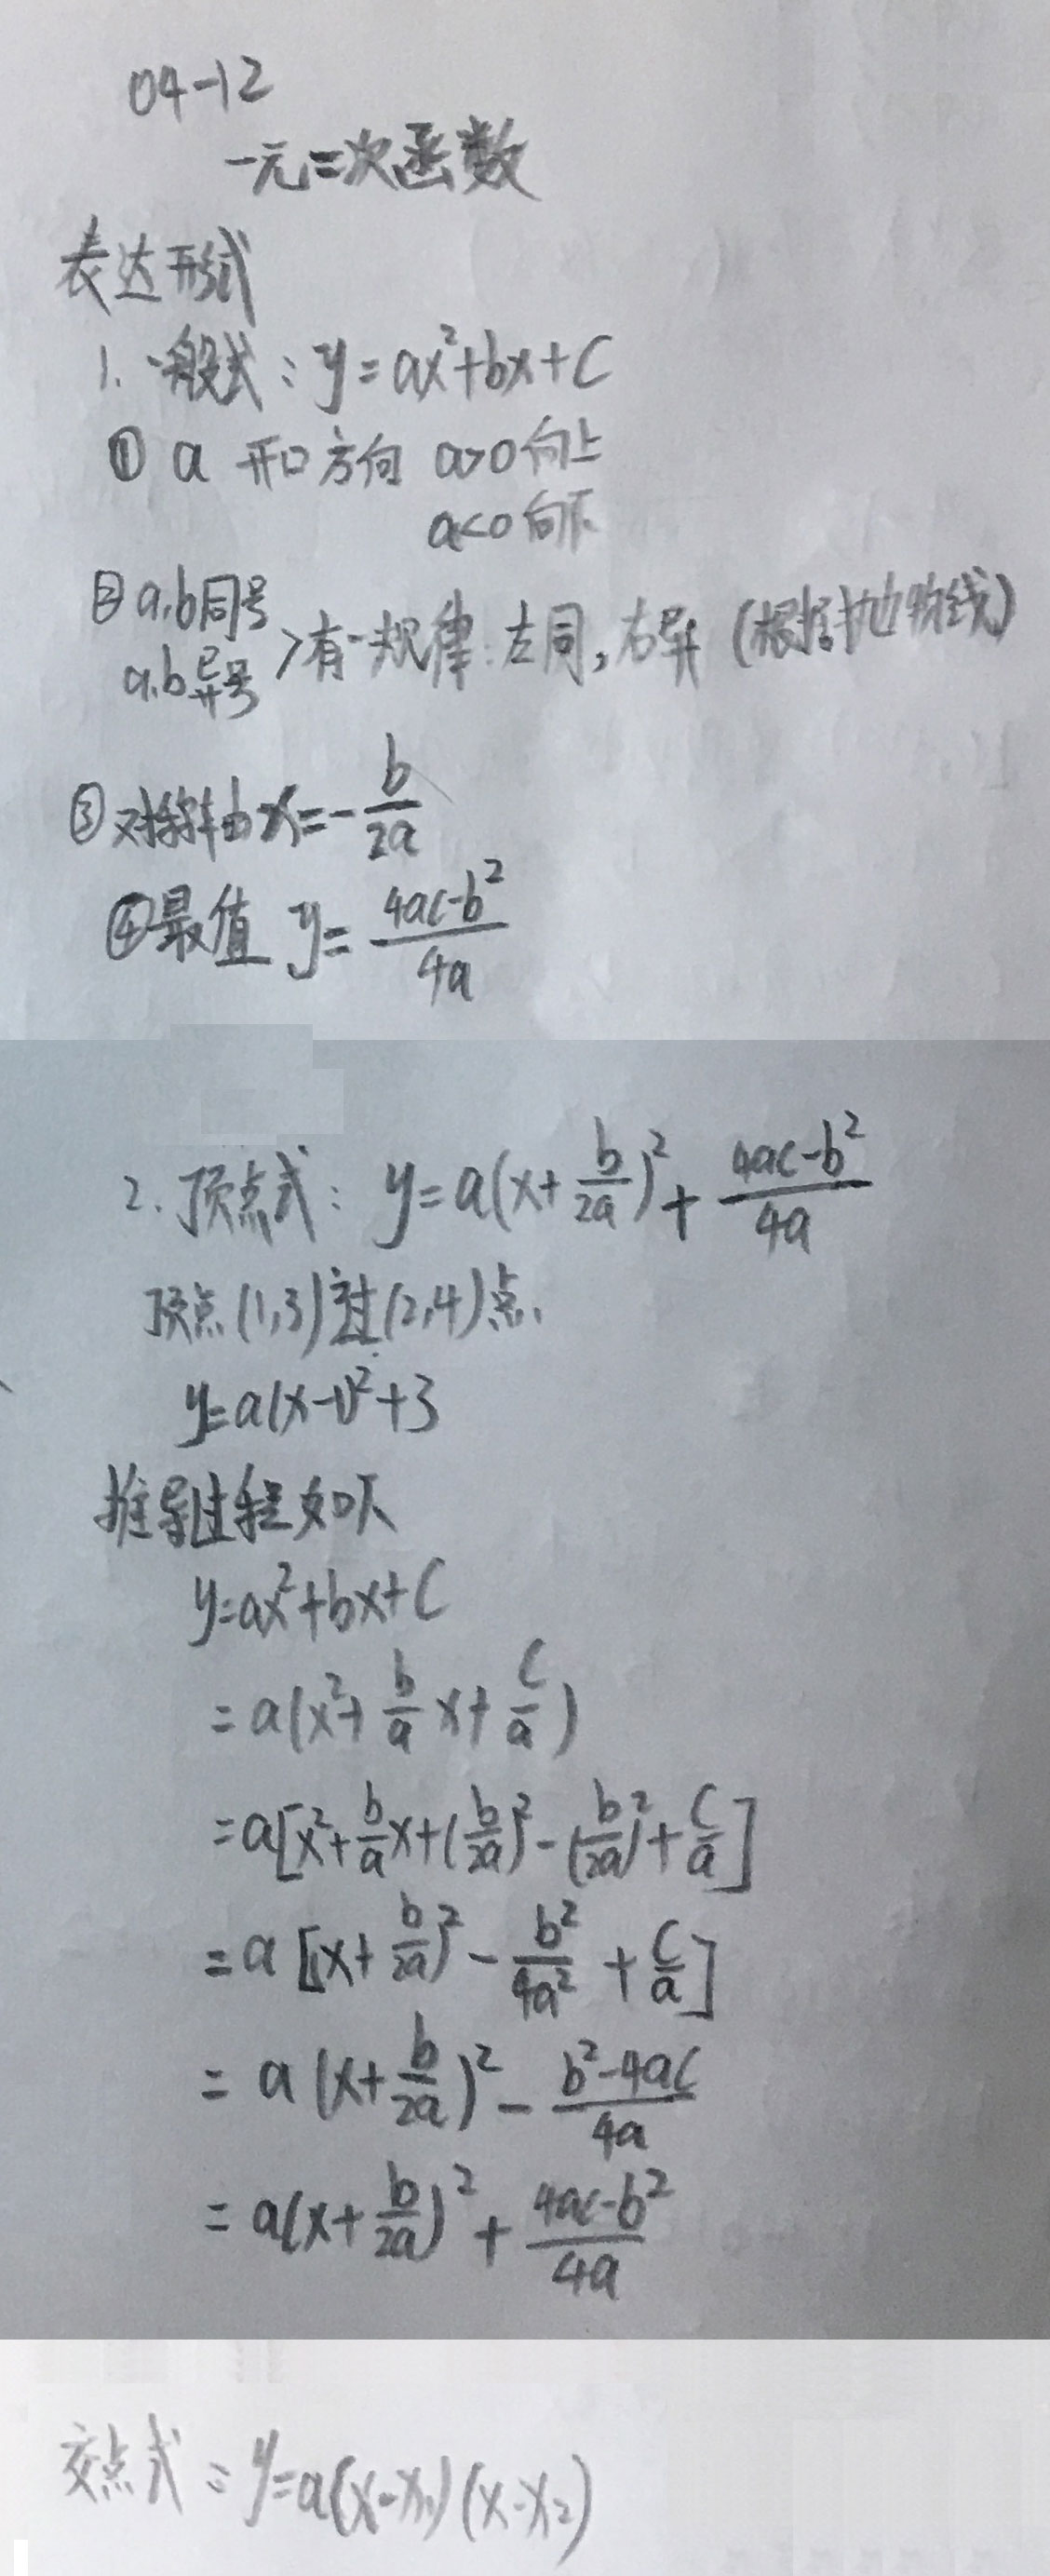 04-12
一元二次函数
表达形式
1. 一般式：y=ax²+bx+c
① a 开口方向 a>0 向上
a<0 向下
② a,b同号
a,b异号 >有一规律：左同,右异 (根据抛物线)
③对称轴 x=-b/2a
④最值 y=(4ac-b²)/4a
2. 顶点式：y=a(x+b/2a)²+(4ac-b²)/4a
顶点(1,3)过(2,4)点.
y=a(x-1)²+3
推导过程如下
y=ax²+bx+c
=a(x²+b/a x+c/a)
=a[x²+b/a x+(b/2a)²-(b/2a)²+c/a]
=a[(x+b/2a)²-b²/4a²+c/a]
=a(x+b/2a)²-(b²-4ac)/4a
=a(x+b/2a)²+(4ac-b²)/4a
交点式：y=a(x-x₁)(x-x₂)